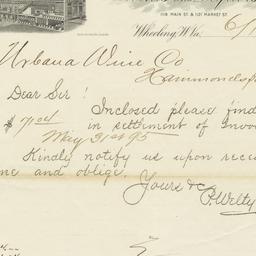 1118 MAIN ST. & 1121 MARKET ST.
Wheeling W.Va. 6/1
Urbana Wine Co
Hammondsp
Dear Sir!
Inclosed please find
$ in settlement of Invoi
May 31st 95
Kindly notify us upon rece
me and oblige.
Yours &c
P. Welty